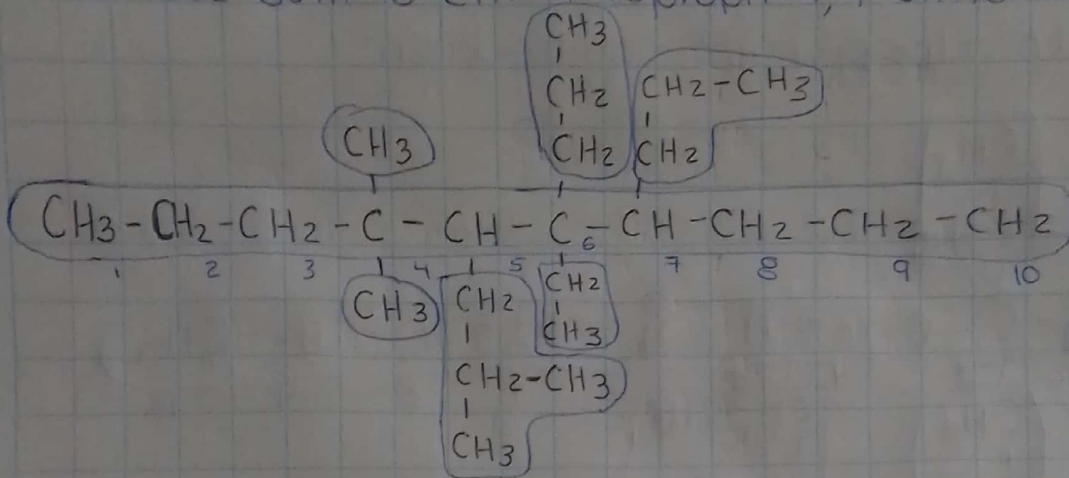 CH3
CH2 CH2-CH3
CH3 CH2 CH2
CH3-CH2-CH2-C-CH-C-CH-CH2-CH2-CH2
1 2 3 4 5 6 7 8 9 10
CH3 CH2 CH2
CH3
CH2-CH3
CH3